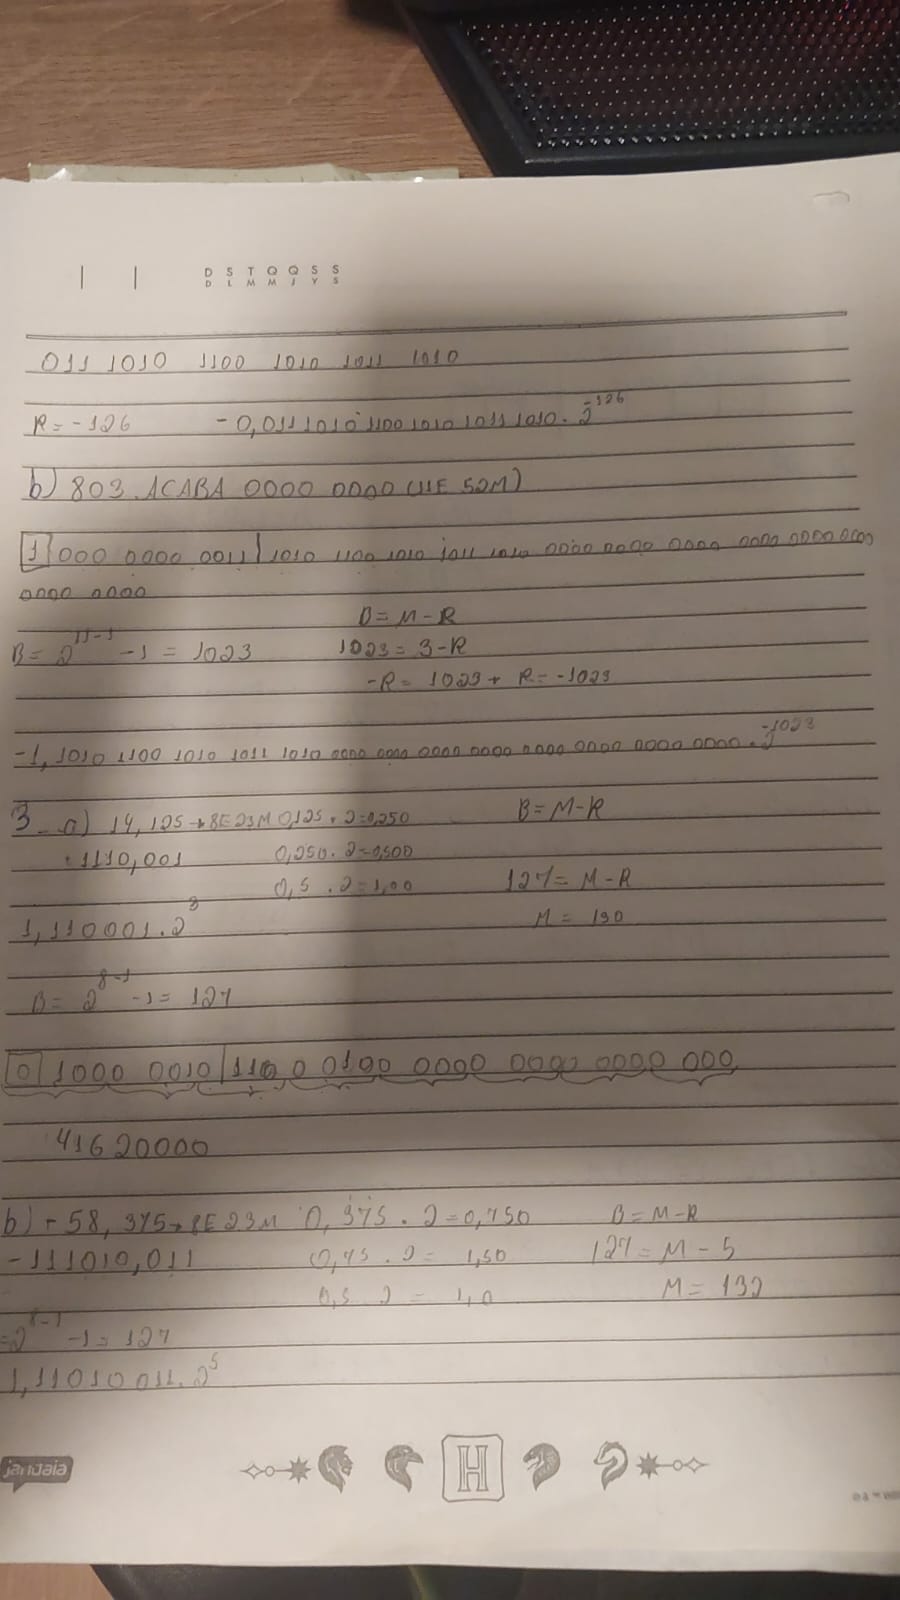 D S T Q Q S S
D L M M J V S
011 1010 1100 1010 1011 1010
R = -126 -0,011 1010 1100 1010 1011 1010 . 2^-126
b) 803 ACABA 0000 0000 (11E 52M)
1|000 0000 0011|1010 1100 1010 1011 1010 0000 0000 0000 0000 0000 0000
0000 0000
B = M - R
B = 2^11-1 -1 = 1023 1023 = 3 - R
-R = 1023 + R = -1023
-1, 1010 1100 1010 1011 1010 0000 0000 0000 0000 0000 0000 0000 0000 . 2^-1023
3 - a) 14, 125 → 8E 23M 0,125 . 2 = 0,250 B = M - R
+1110,001 0,250 . 2 = 0,500
0,5 . 2 = 1,00 127 = M - R
1,110001 . 2^3 M = 130
B = 2^8-1 -1 = 127
0|1000 0010|110 0 0100 0000 0000 0000 000
41620000
b) - 58, 375 → 8E 23M 0,375 . 2 = 0,750 B = M - R
-111010,011 0,75 . 2 = 1,50 127 = M - 5
0,5 2 = 1,0 M = 132
= 2^8-1 -1 = 127
1,11010 011 . 2^5
H
jandaia